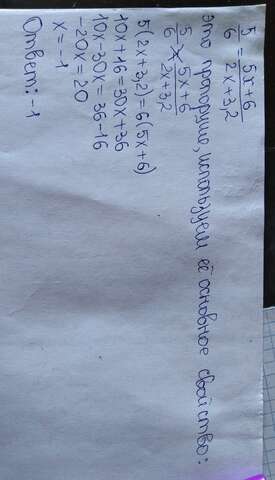 5/6 = 5x+6/2x+3,2
это пропорция, используем её основное свойство:
5/6 = 5x+6/2x+3,2
5(2x+3,2)=6(5x+6)
10x+16=30x+36
10x-30x=36-16
-20x=20
x=-1
Ответ: -1